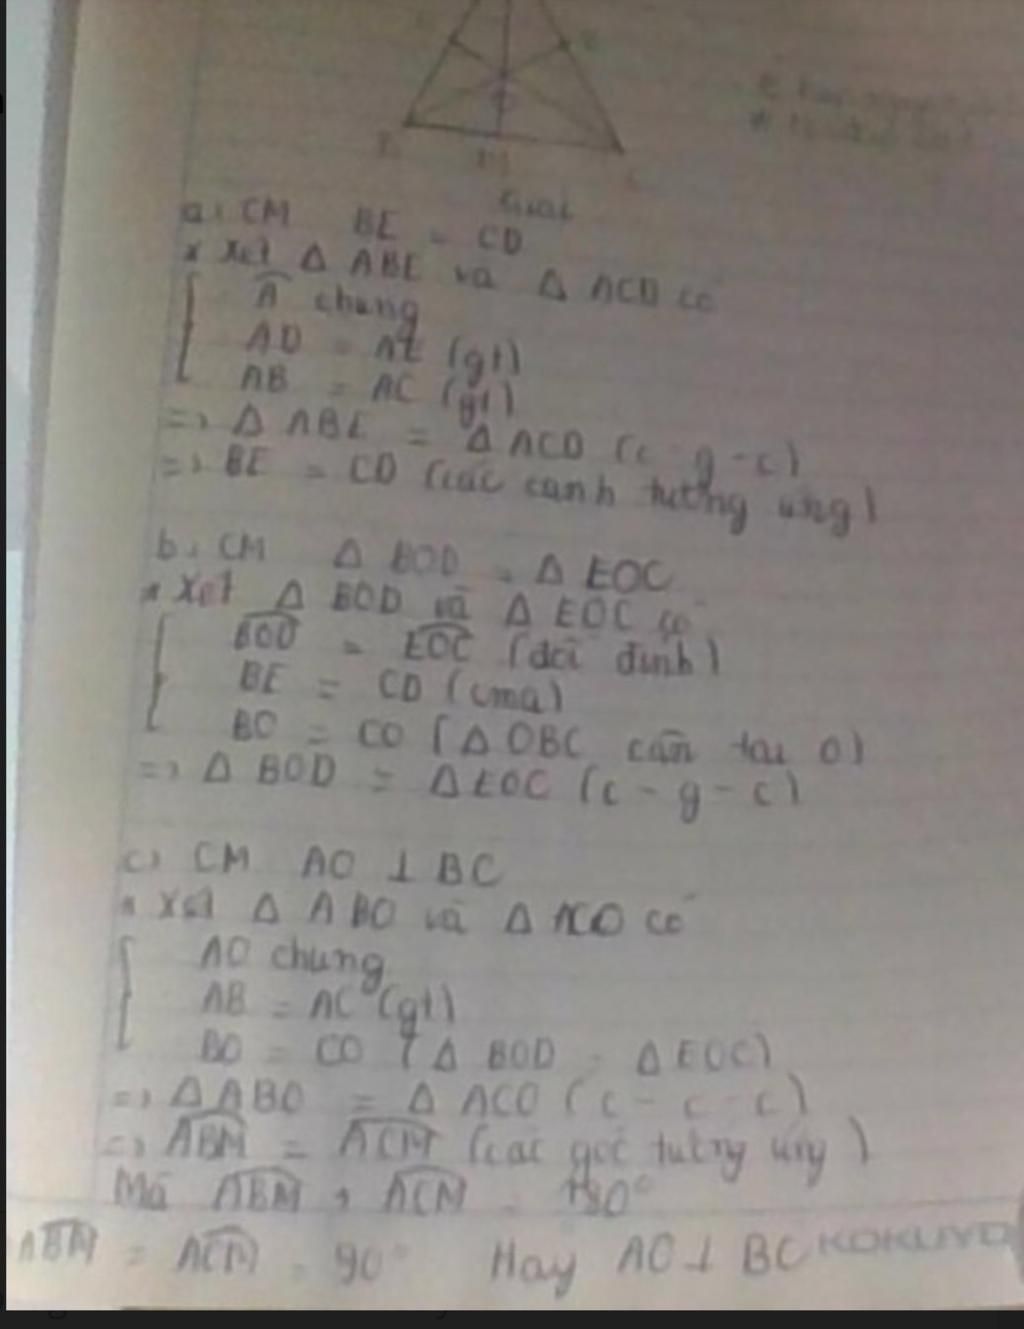 M
Giải
a, CM BE = CD
* Xét Δ ABE và Δ ACD có
Â chung
AD = AE (gt)
AB = AC (gt)
=> Δ ABE = Δ ACD (c - g - c)
=> BE = CD (các cạnh tương ứng)
b, CM Δ BOD = Δ EOC
* Xét Δ BOD và Δ EOC có
BOD = EOC (đối đỉnh)
BE = CD (cma)
BO = CO (Δ OBC cân tại O)
=> Δ BOD = Δ EOC (c - g - c)
c, CM AO ⊥ BC
* Xét Δ ABO và Δ ACO có
AO chung
AB = AC (gt)
BO = CO (Δ BOD = Δ EOC)
=> Δ ABO = Δ ACO (c - c - c)
=> ABM = ACM (các góc tương ứng)
Mà ABM + ACM = 180°
ABM = ACM = 90° Hay AO ⊥ BC KOKUYO